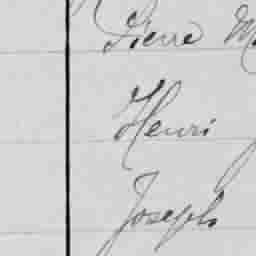 Pierre
Henri
Joseph